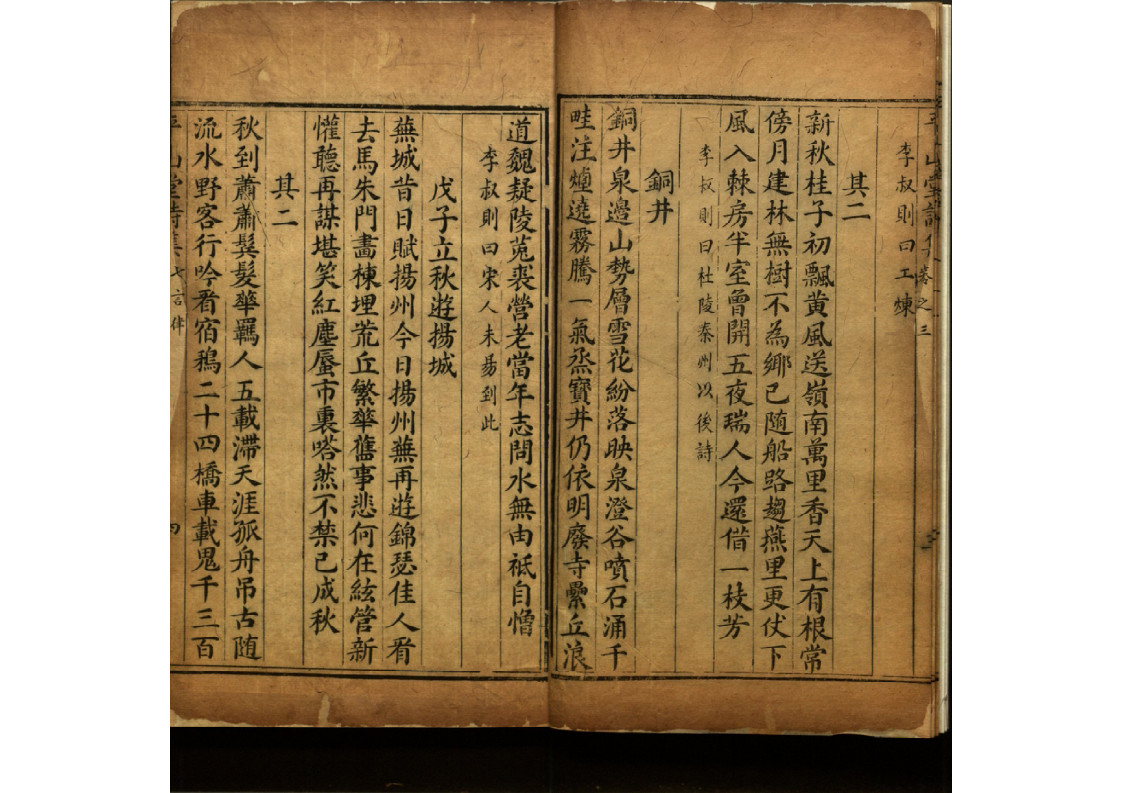 李叔則曰工煉
其二
新秋桂子初飄黃風送嶺南萬里香天上有根常
傍月建林無樹不為鄉已随船路趨燕里更伏下
風入棘房半室曾開五夜瑞人今還借一枝芳
李叔則曰杜陵秦州以後詩
銅井
銅井泉邊山勢層雪花紛落映泉澄谷噴石涌千
畦注煙遶霧騰一氣烝寶井仍依明廢寺纍丘浪
道魏疑陵菟裘營老當年志問水無由祗自憎
李叔則曰宋人未易到此
戊子立秋遊揚城
蕪城昔日賦揚州今日揚州蕪再遊錦瑟佳人看
去馬朱門畫棟埋荒丘繁華舊事悲何在絃管新
懽聽再謀堪笑紅塵蜃市裏嗒然不禁已成秋
其二
秋到蕭蕭鬂髮華羈人五載滯天涯孤舟吊古随
流水野客行吟看宿鵶二十四橋車載鬼千三百
山堂詩集 七言律 四